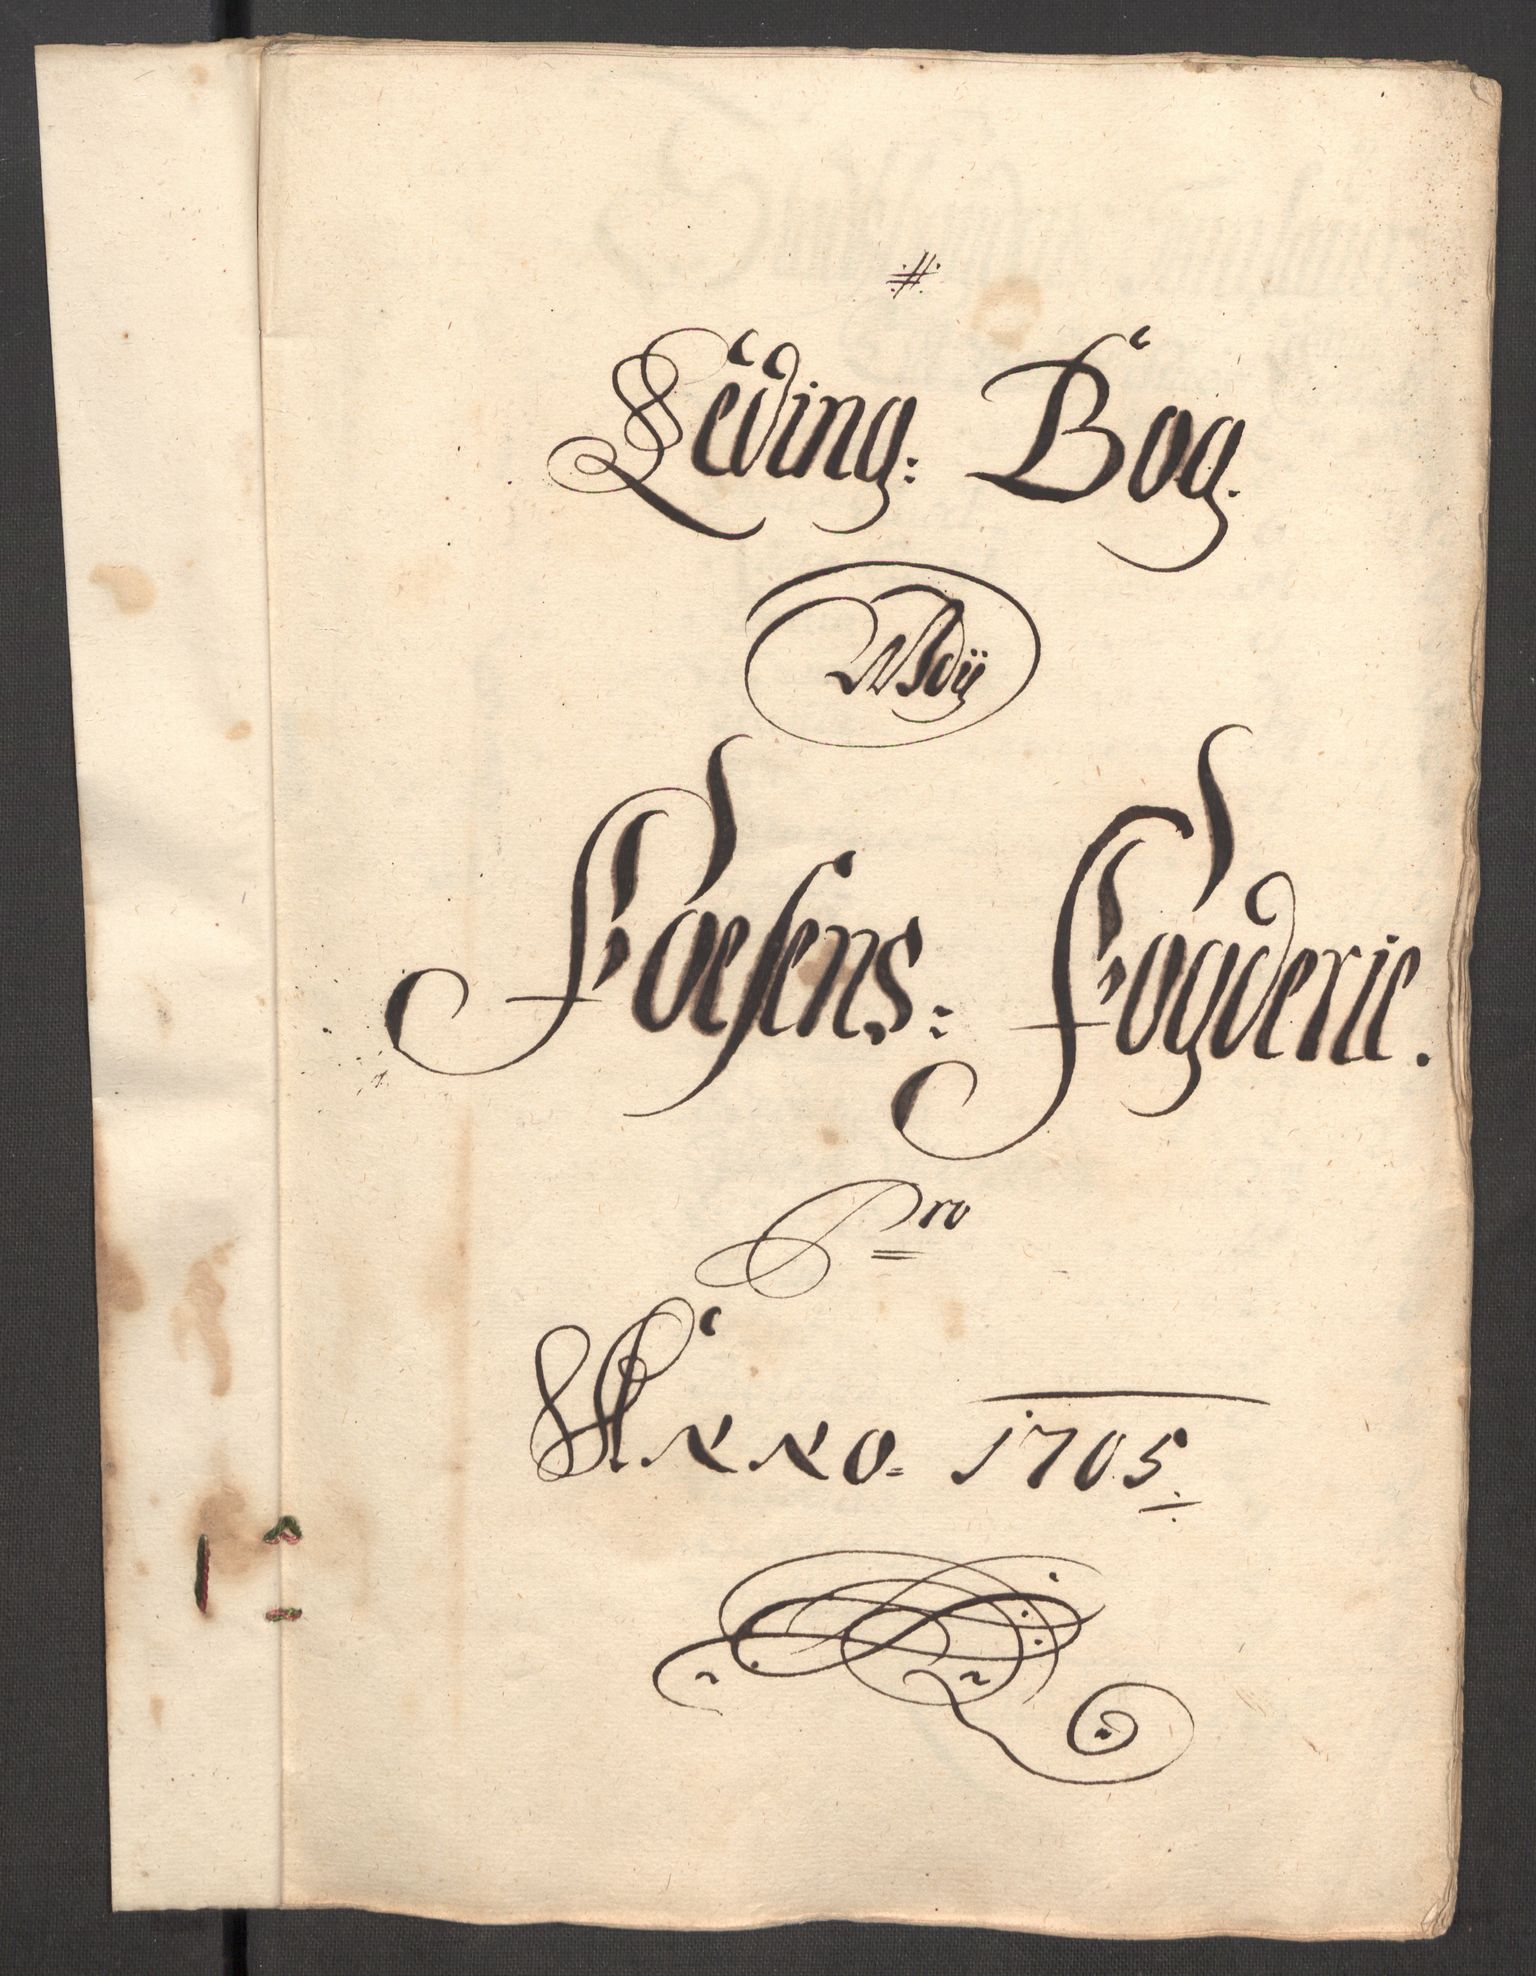 Leding: Bog.
Udij
Foesens: Fogderie.
Pro
Anno. 1705.